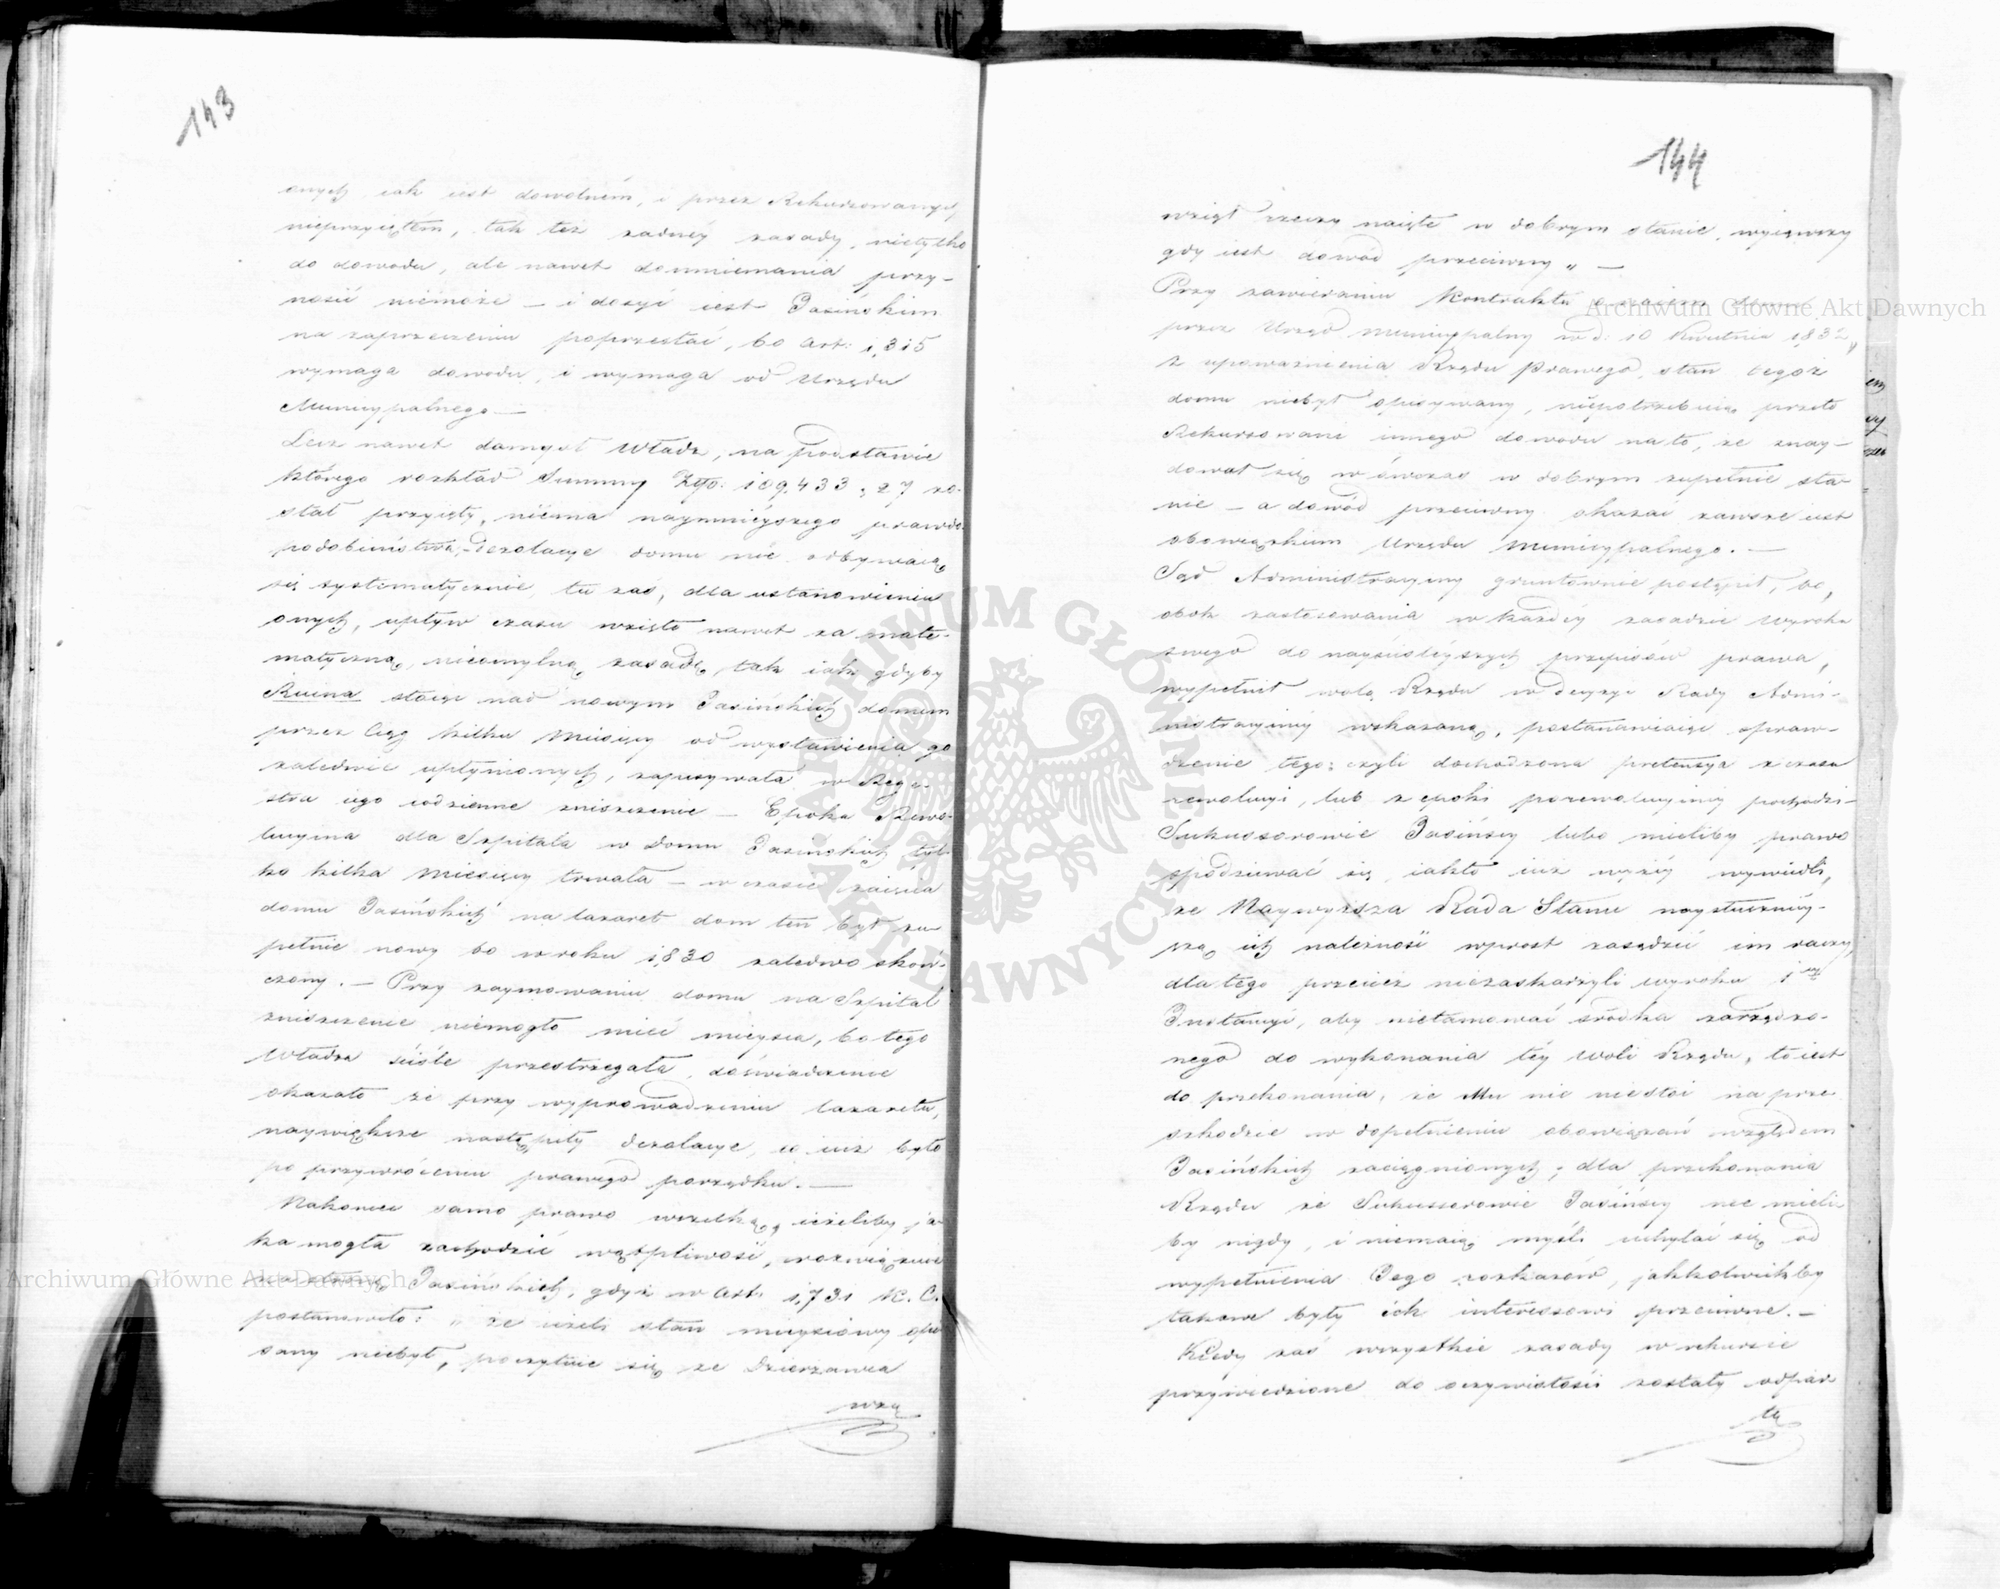 143
onych, iak iest dowolném, i przez Rekursowanych
nieprzyiętém, tak też żadnéy zasady, nietylko
do dowodu, ale nawet domniemania przy-
nosić niemoże — i dosyć iest Jasińskim
na zaprzeczeniu poprzestać, bo Art: 1,315
wymaga dowodu, i wymaga od Urzędu
Municypalnego —
Lecz nawet domysł Władz, na podstawie
którego rozkład Summy Złp: 109,433 „ 27 zo-
stał przyięty, niema naymnieyszego prawdo-
podobieństwa, — dezolacye domu nie odbywaią
się systematycznie, tu zaś, dla ustanowienia
onych, upływ czasu wzięto nawet za mate-
matyczną, nieomylną zasadę, tak iak gdyby
Ruina stoiąc nad nowym Jasińskich domem
przez ciąg kilku Miesięcy od wystawienia go
zaledwie upłynionych, zapisywała w Rege-
stra iego codzienne zniszczenie — Epoka Rewo-
lucyina dla Szpitala w Domu Jasińskich tyl-
ko kilka Miesięcy trwała — w czasie zaięcia
domu Jasińskich na lazaret dom ten był zu-
pełnie nowy bo w roku 1,830 zaledwo skoń-
czony. — Przy zaymowaniu domu na Szpital
zniszczenie niemogło mieć mieysca, bo tego
Władza ściśle przestrzegała, doświadczenie
okazało że przy wyprowadzeniu lazaretu,
naywiększe nastąpiły dezolacye, co iuż było
po przywróceniu prawego porządku. —
Nakoniec samo prawo wszelką, ieżeliby ja-
ka mogła zachodzić wątpliwość, rozwiązuie
na stronę Jasińskich, gdyż w Art: 1,731 K. C.
postanowiło: „ że ieżeli stan mieyscowy opi-
sany niebył, poczytuie się że Dzierżawca
wzią
144
wziął rzeczy naięte w dobrym stanie, wyiąwszy
gdy iest dowód przeciwny „ —
Przy zawieraniu Kontraktu o naiem domu
przez Urząd Municypalny w d: 10 Kwietnia 1832,
z upoważnienia Rządu Prawego, stan tegoż
domu niebył opisywany, niepotrzebuią przeto
Rekursowani innego dowodu na to, że znay-
dował się w ówczas w dobrym zupełnie sta-
nie — a dowód przeciwny okazać zawsze iest
obowiązkiem Urzędu Municypalnego. —
Sąd Administracyiny gruntownie postąpił, bo,
obok zastosowania w każdéy zasadzie Wyroku
swego do nayściśleyszych przepisów prawa,
wypełnił wolą Rządu w decyzyi Rady Admi-
nistracyinéy wskazaną, postanawiaiąc spraw-
dzenie tego: czyli dochodzona pretensya z czasu
rewolucyi, lub z epoki porewolucyinéy pochodzi —
Sukcessorowie Jasińscy lubo mieliby prawo
spodziewać się, iakto iuż wyżéy wywiedli,
że Naywyższa Rada Stanu naysłuszniéy-
szą ich należność wprost zasądzić im raczy,
dla tego przecież niezaskarżyli wyroku 1wéy
Instancyi, aby nietamować środka zarządzo-
nego do wykonania téy woli Rządu, to iest
do przekonania, że Mu nic nie stoi na prze-
szkodzie w dopełnieniu obowiązań względem
Jasińskich zaciągnionych; dla przekonania
Rządu że Sukcessorowie Jasińscy nie mieli-
by nigdy, i niemaią myśli uchylać się od
wypełnienia Jego rozkazów, jakkolwiekby
takowe były ich interessowi przeciwne. —
Kiedy zaś wszystkie zasady w rekursie
przywiedzione do oczywistości zostały odpar
te